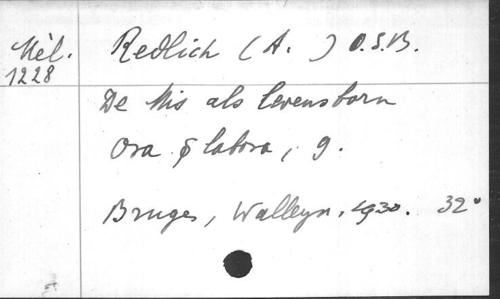 Mél. 1228
Redlich (A. ) O.S.B.
De Mis als levensbron
Ora & labora, 9.
Bruges, Walleyn, 1930. 32°